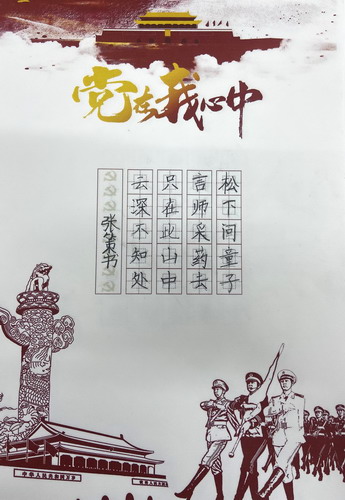 党在我心中
松下问童子
言师采药去
只在此山中
云深不知处